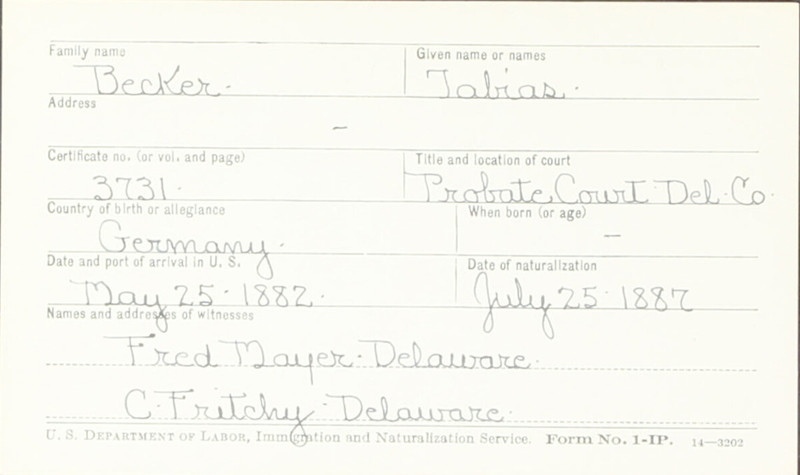 Family name Given name or names
Becker. Tabias.
Address
–
Certificate no. (or vol. and page) Title and location of court
3731. Probate Court Del. Co.
Country of birth or allegiance When born (or age)
Germany. –
Date and port of arrival in U. S. Date of naturalization
May 25 - 1882. July 25 - 1887
Names and addresses of witnesses
Fred Mayer - Delaware.
C. Fritchy - Delaware.
U. S. DEPARTMENT OF LABOR, Immigration and Naturalization Service. Form No. 1-IP. 14—3202